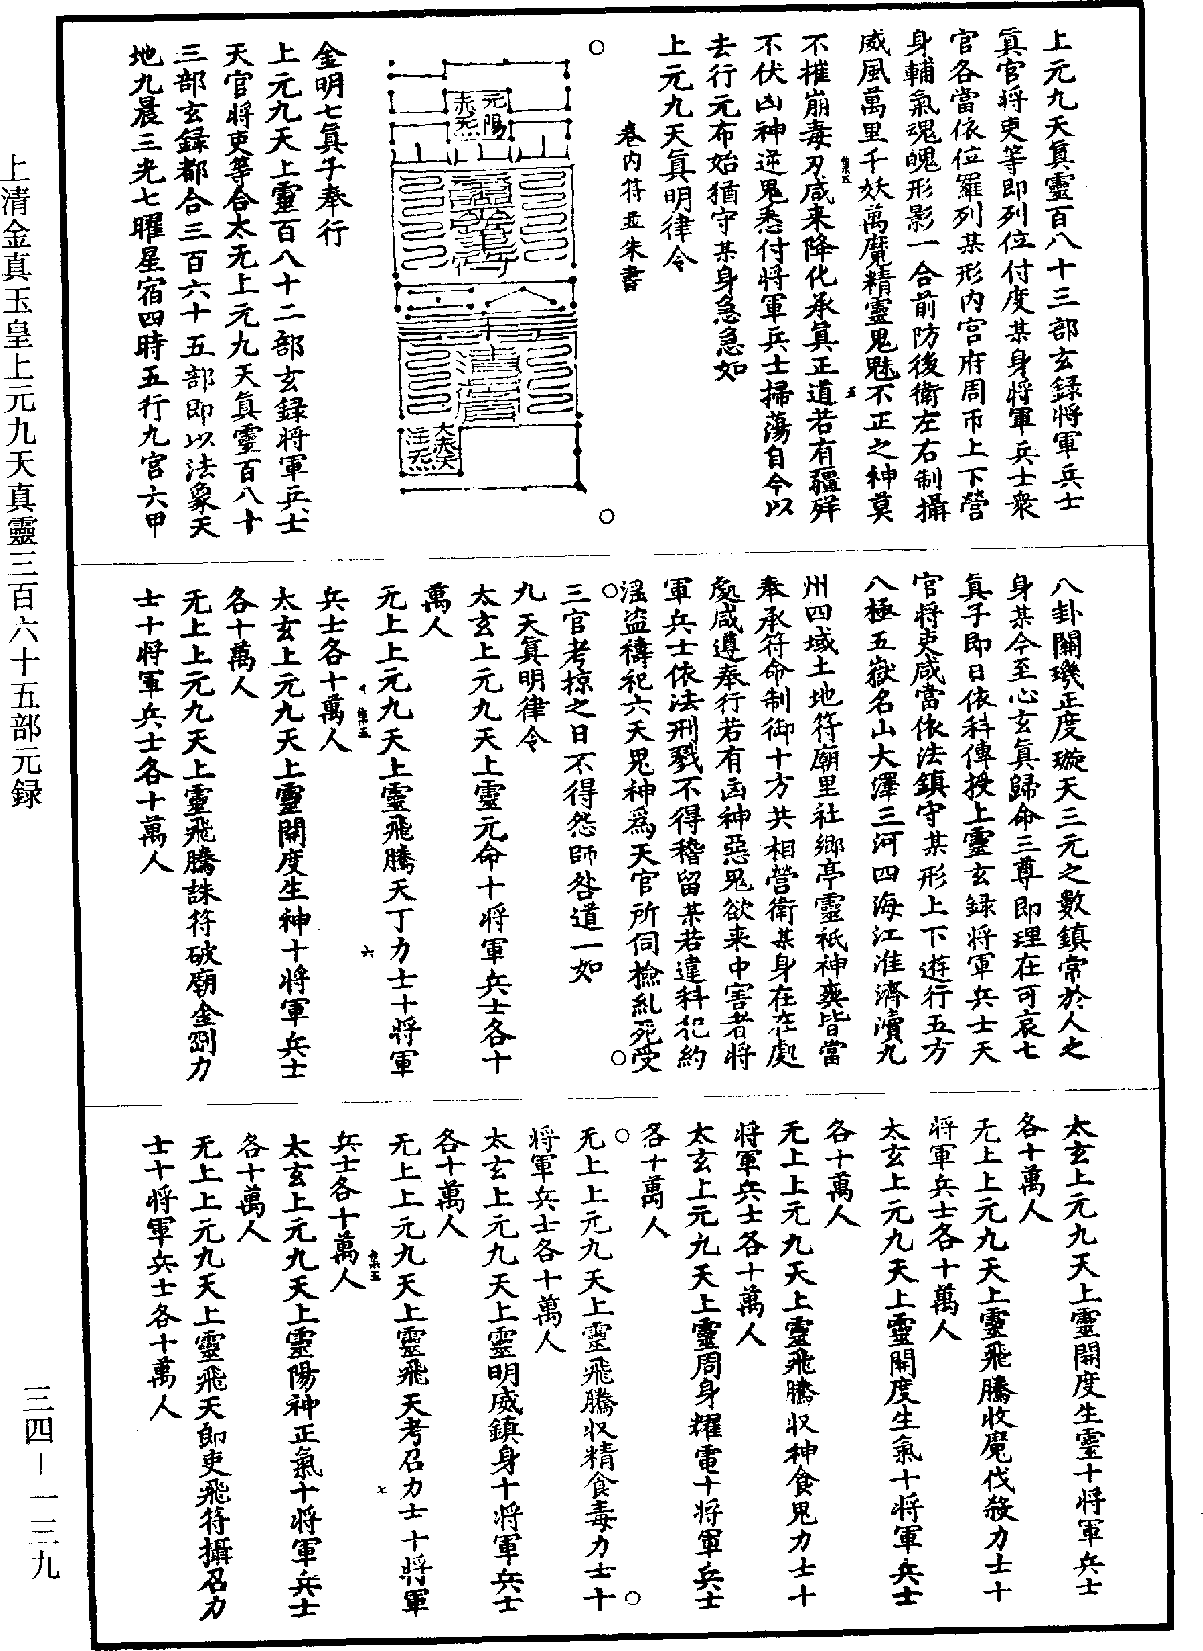 上元九天真靈百八十三部玄録將軍兵士
真官將吏等即列位付度某身將軍兵士衆
官各當依位羅列某形内宮府周帀上下營
身輔氣魂魄形影一合前防後衛左右制攝
威風萬里千妖萬魔精靈鬼魅不正之神莫
不摧崩毒刃咸来降化承真正道若有彊鋅
不伏凶神逆鬼悉付將軍兵士掃蕩自今以
去行元布始猶守某身急急如
上元九天真明律令
卷内符並朱書
元陽
赤炁
太天
注炁
金明七真子奉行
上元九天上靈百八十二部玄録將軍兵士
天官將吏等合太无上元九天真靈百八十
三部玄録都合三百六十五部即以法象天
地九晨三光七曜星宿四時五行九宮六甲
八卦關璣正度璇天三元之數鎮常於人之
身某今至心玄真歸命三尊即理在可哀七
真子即日依科傳授上靈玄録將軍兵士天
官將吏咸當依法鎮守某形上下遊行五方
八極五嶽名山大澤三河四海江淮濟瀆九
州四域土地符廟里社鄉亭靈祇神葉皆當
奉承符命制御十方共相營衛某身在在處
處咸遵奉行若有凶神惡鬼欲来中害者將
軍兵士依法刑戮不得稽留某若違科犯約
淫盜禱祀六天鬼神爲天官所伺檢糺死受
三官考掠之日不得怨師咎道一如
九天真明律令
太玄上元九天上靈元命十將軍兵士各十
萬人
无上上元九天上靈飛騰天丁力士十將軍
兵士各十萬人
太玄上元九天上靈開度生神十將軍兵士
各十萬人
无上上元九天上靈飛騰誅符破廟金剛力
士十將軍兵士各十萬人
太玄上元九天上靈開度生靈十將軍兵士
各十萬人
无上上元九天上靈飛騰收魔伐殺力士十
將軍兵士各十萬人
太玄上元九天上靈開度生氣十將軍兵士
各十萬人
无上上元九天上靈飛騰收神食鬼力士十
將軍兵士各十萬人
太玄上元九天上靈周身耀電十將軍兵士
各十萬人
无上上元九天上靈飛騰收精食毒力士十
將軍兵士各十萬人
太玄上元九天上靈明威鎮身十將軍兵士
各十萬人
无上上元九天上靈飛天考召力士十將軍
兵士各十萬人
太玄上元九天上靈陽神正氣十將軍兵士
各十萬人
无上上元九天上靈飛天郎吏飛符攝召力
士十將軍兵士各十萬人
上清金真玉皇上元九天真靈三百六十五部元録
三四－一三九